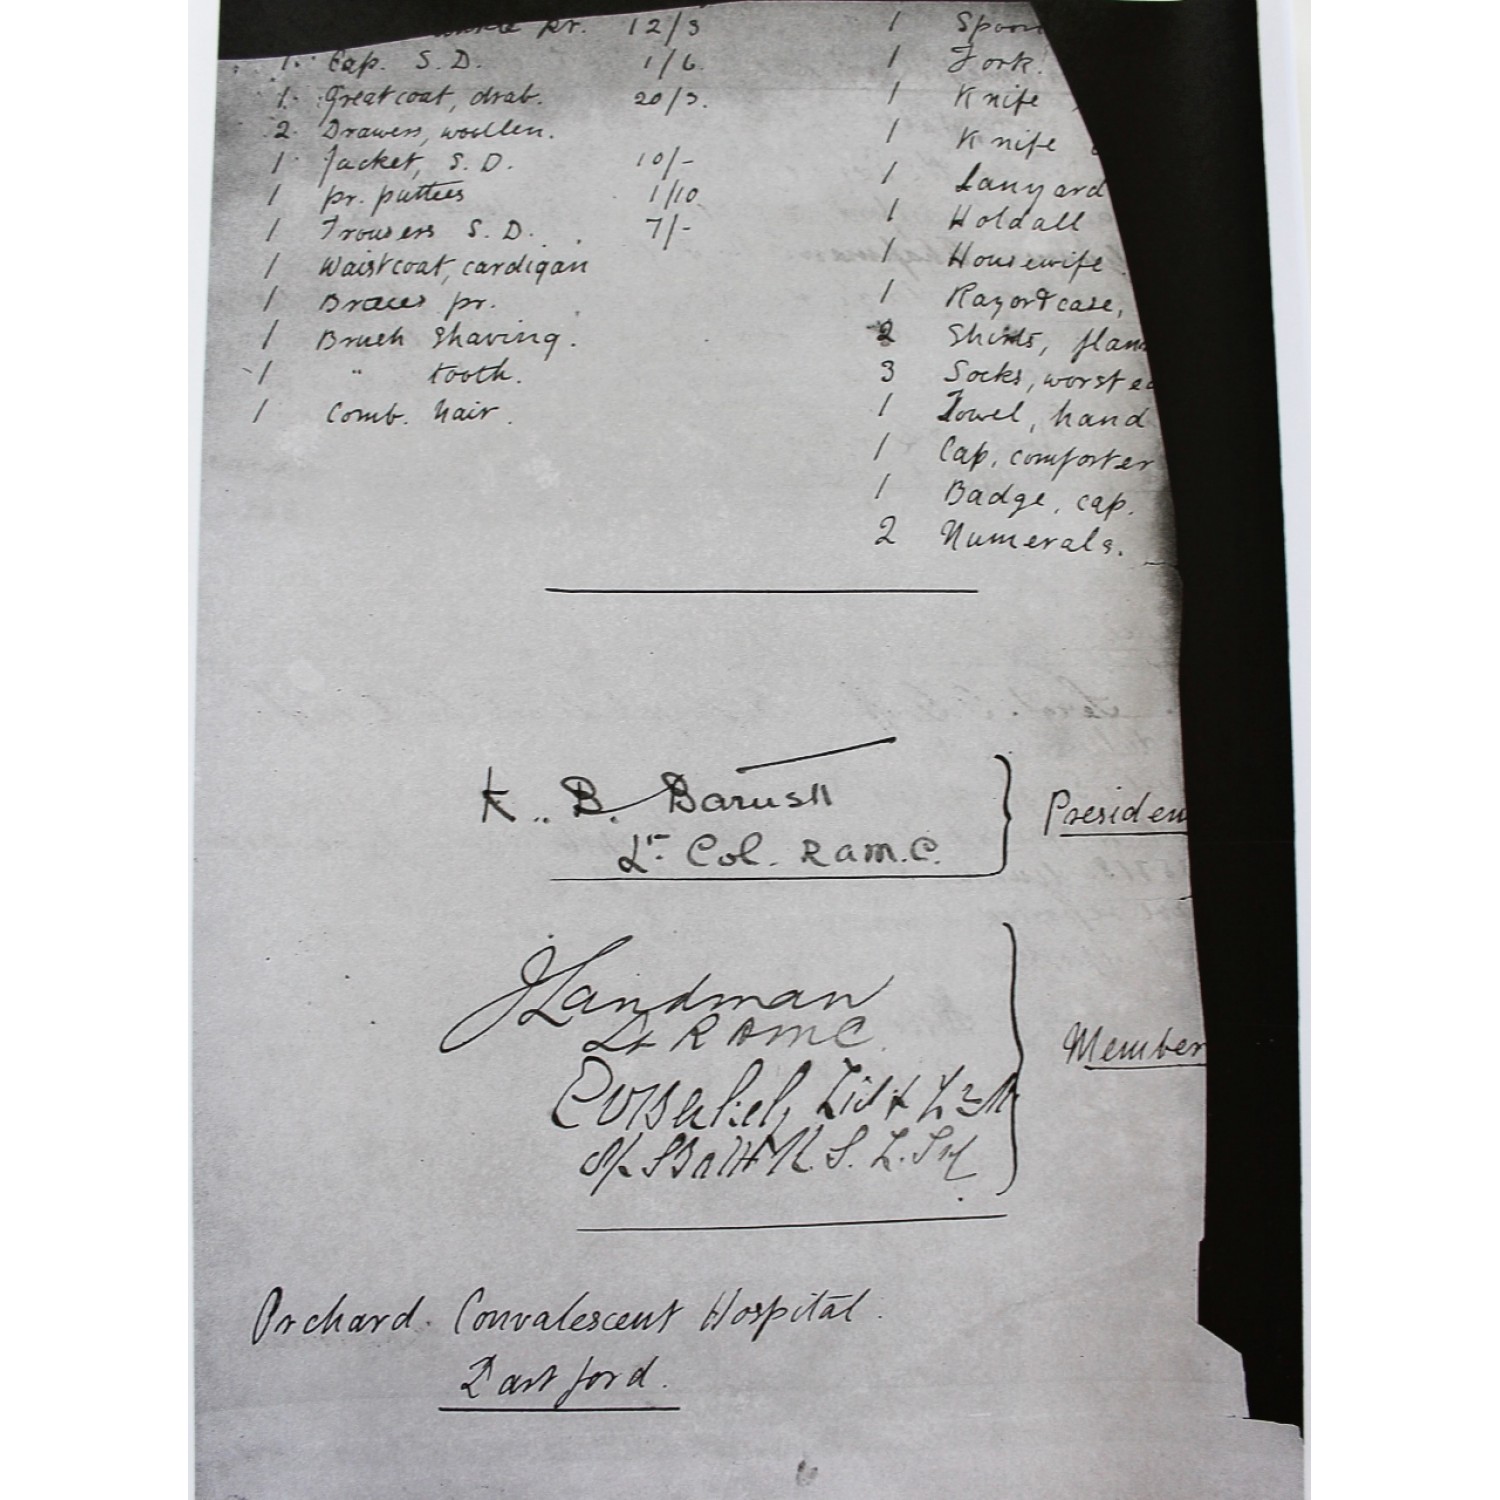 pr. 12/3
1. Cap. S.D. 1/6
1. Greatcoat, drab. 20/3.
2. Drawers, woollen.
1. Jacket, S.D. 10/-
1 pr. puttees 1/10.
1 Trousers S.D. 7/-
1 Waistcoat, cardigan
1 Braces pr.
1 Brush Shaving.
1 " tooth.
1 Comb. hair.
1 Spoon
1 Fork.
1 Knife
1 Knife
1 Lanyard
1 Holdall
1 Housewife.
1 Razor & case,
2 Shirts, flan
3 Socks, worsted
1 Towel, hand
1 Cap, comforter
1 Badge, cap.
2 Numerals.
K. B. Barnsll
Lt. Col. R.A.M.C.
Presiden
J Landman
Lt RAMC
Member
Orchard. Convalescent Hospital.
Dartford.